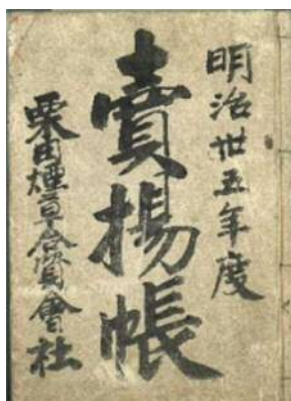 明治卅五年度
賣揚帳
栗田煙草合資會社